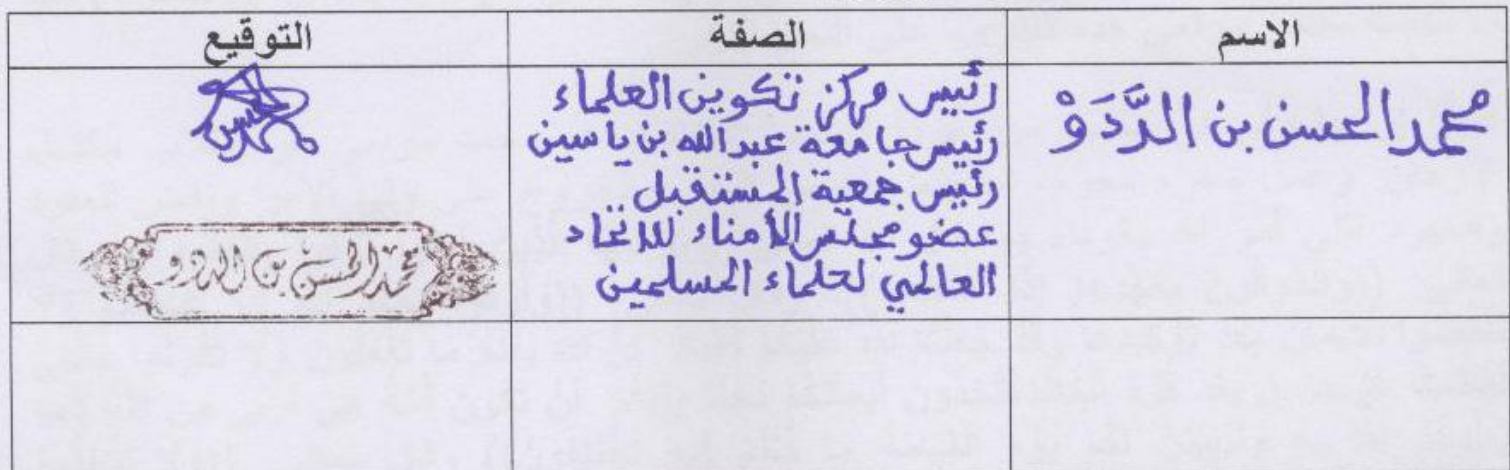 الاسم
الصفة
التوقيع
محمد الحسن بن الدَّدَوْ
رئيس مركز تكوين العلماء
رئيس جامعة عبد الله بن ياسين
رئيس جمعية المستقبل
عضو مجلس الأمناء للاتحاد
العالمي لعلماء المسلمين
محمد الحسن بن الددو